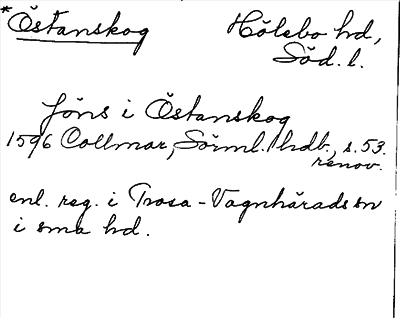 *Östanskog Hölebo hd,
Söd. l.
Jöns i Östanskog
1596 Collmar, Sörml. hdb., s. 53.
renov.
enl. reg. i Trosa-Vagnhärads sn
i sma hd.